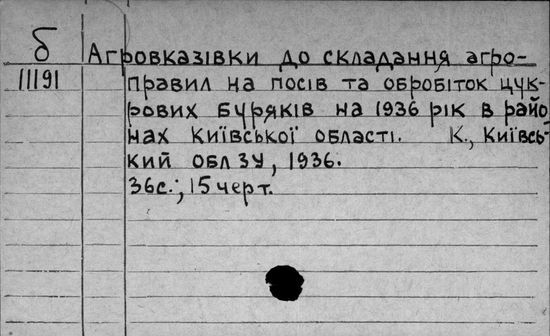 б
11191
Агровказівки до складання агро-
правил на посів та обробіток цук-
рових буряків на 1936 рік в райо-
нах Київської області. К., Київсь-
кий облЗУ, 1936.
36с.; 15 черт.